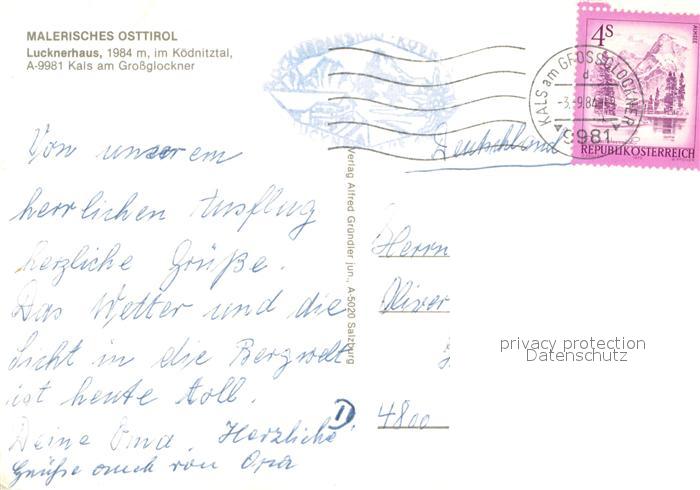 MALERISCHES OSTTIROL
Lucknerhaus, 1984 m, im Ködnitztal,
A-9981 Kals am Großglockner
4S
ALMSEE
REPUBLIK ÖSTERREICH
KALS am GROSSGLOCKNER
d
-3.-9.84
9981
Deutschland
Von unserem
herrlichen Ausflug
herzliche Grüße.
Das Wetter und die
Sicht in die Bergwelt
ist heute toll.
Deine Oma. Herzliche
Grüße auch von Opa
Verlag Alfred Gründler jun., A-5020 Salzburg
Herrn
Oliver
4800
privacy protection
Datenschutz